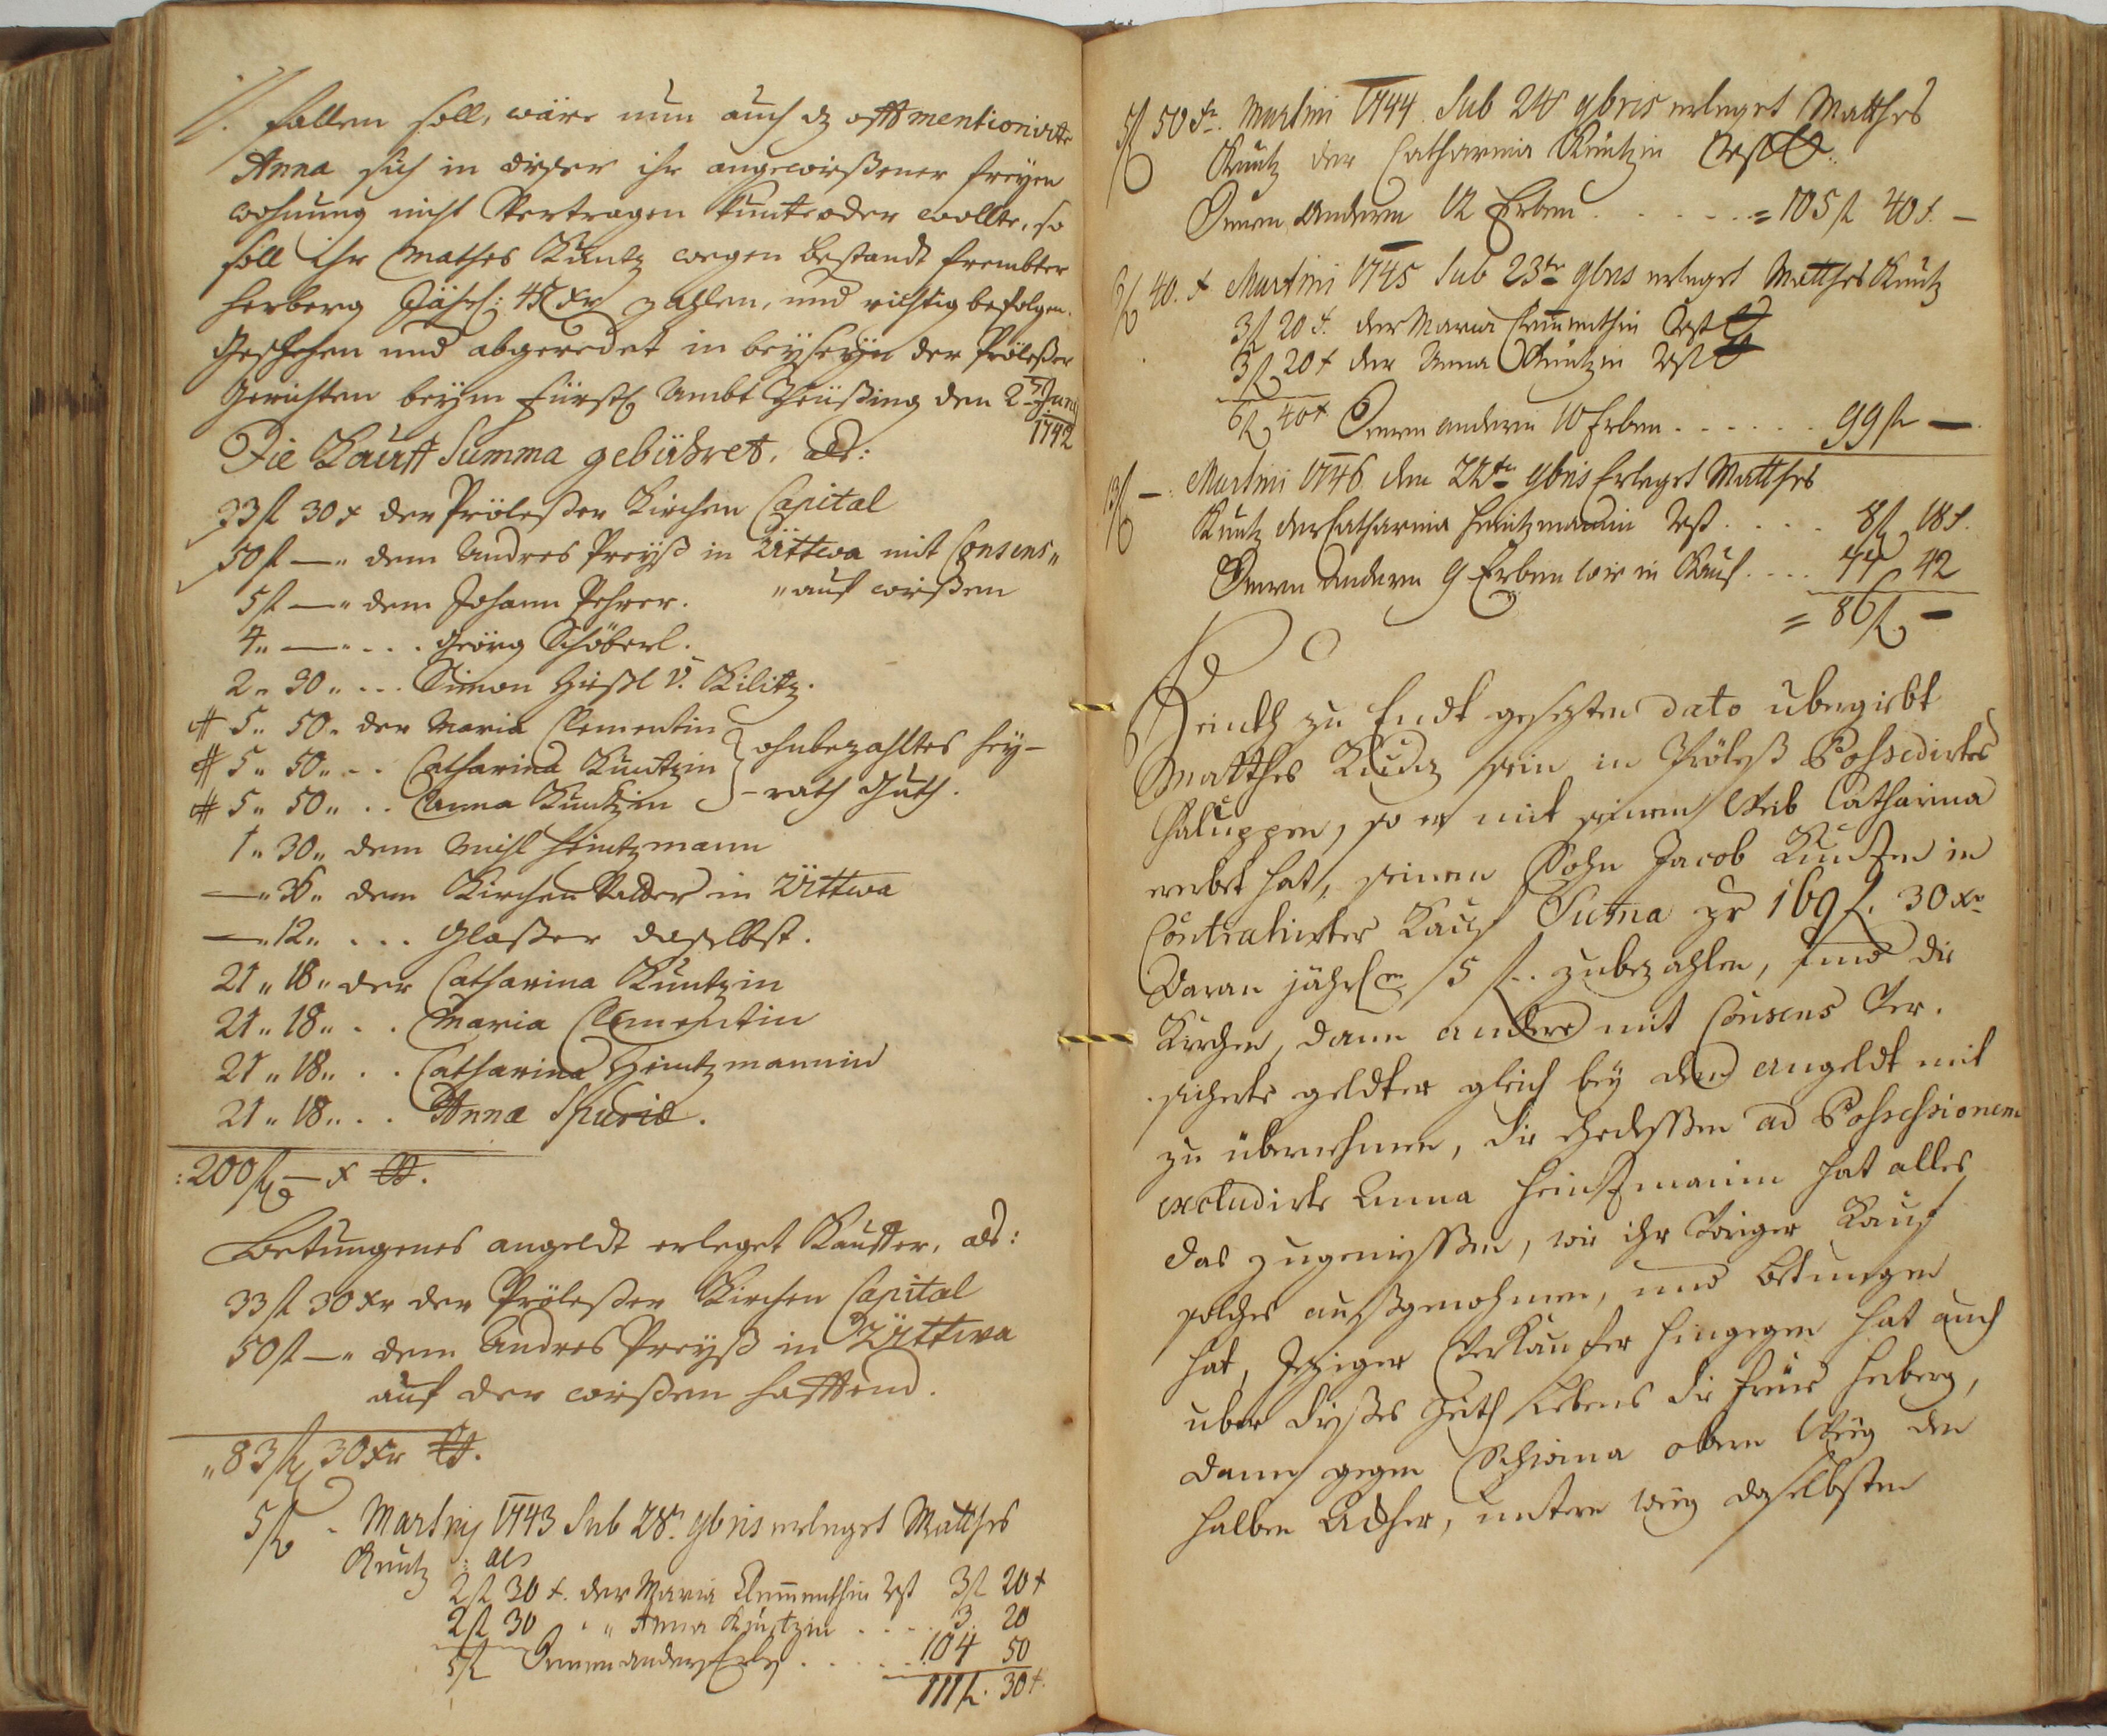 fallen soll, wäre nun auch dz offtmentionirte
Anna sich in dießer ihr angewießener freyen
wohnung nicht Vertragen kunte oder wollte, so
soll ihr Mathes Kuntz wegen bestandt frembter
herberg Jährl: 42 xr zahlen, und richtig befolgen.
Geschehen und abgeredet in beyseyn der Prölesser
Gerichten beym Fürstl Ambt Theüßing den 2t Juny
1742
Die Kauff Summa gebühret, als:
33 fl 30 x der Prölesser Kirchen Capital
50 fl — „ dem Andres Preyß in Üttwa mit Consens„
„auf wießen
5 fl — „ dem Johann Pehrer.
4 „ — „ . . . Geörg Schöberl.
2 „ 30 „ . . . Simon Hießl v. Kilitz.
# 5 „ 50 „ der Maria Clementin
# 5 „ 50 „ . . Catharina Kuntzin } ohnbezahltes hey-
# 5 „ 50 „ . . Anna Kuntzin -rath Guth.
1 „ 30 „ dem Michl Heintzmann
— „ 36 „ dem Kirchen Vatter in Üttwa
— „ 12 „ . . . Glaßer daselbst.
21 „ 18 „ der Catharina Kuntzin
21 „ 18 „ . . Maria Clementin
21 „ 18 „ . . Catharina Heintzmannin
21 „ 18 „ . . Anna Spuria.
: 200 fl — x
Betungenes angeldt erleget Kauffer, als:
33 fl 30 xr der Prölesser Kirchen Capital
50 fl — „ dem Andres Preyß in Üttwa
auf der wießen hafftend.
„ 83 fl 30 xr
5 fl - Martiny 1743 Sub 28t 9bris erleget Matthes
Kuntz: als
2 fl 30 x. der Maria Clementhin Rest 3 fl 20 x
2 fl 30 „ Anna Kuntzin . . . . 3. 20
5 fl Denen andern Erben . . . . . 104 50
111 fl. 30 x.
5 fl 50 xr. Martini 1744. Sub 24t 9bris erleget Matthes
Kuntz der Catharina Kuntzin Rest
Denen andern 12 Erben . . . . . = 105 fl 40 x. —
6 fl 40. x Martini 1745 Sub 23te 9bris erleget Matthes Kuntz
3 fl 20 x. der Maria Clementhin Rest
3 fl 20 x der Anna Kuntzin Rest
6 fl 40 x Denen andern 10 Erben . . . . . . 99 fl —
13 fl — : Martini 1746 den 22te 9bris Erleget Matthes
Kuntz der Catharina Heintzmannin Rest . . . . 8 fl 18 x.
Denen andern 9 Erben wie in Kauf . . . . 77 42
= 86 fl —
Heinth zu Endt gesezten dato übergiebt
Matthes Kuntz sein in Pröleß Possedirtes
Chaluppen, so er mit seinem Weib Catharina
erebet hat, seinem Sohn Jacob Kuntzen in
Contrahirter Kauf Suma pr 169 f. 30 xr
Daran jährlen 5 f.. zubezahlen, und die
Kirchen, dann andere mit Consens Ver-
sicherte geldter gleich bey dem angeldt mit
zu übernehmen, die ehedessen ad Possessionem
excludirte Anna Heintzmanin hat alles
das zugeniessen, wie ihr Voriger Kauf
solches außgenohmen, und betungen
hat, Jeziger Verkaufer hingegen hat auch
uber dießes Zeith Lebens die freüe herberg,
dann gegen Schirma obern Weeg den
halben Acker, untern weeg daselbsten